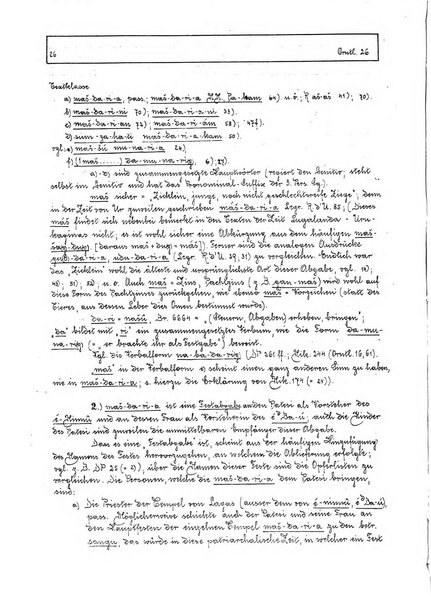 26 Orntl. 26
Textklasse
a) maš-da-ri-a, pass.; maš-da-ri-a
b) maš-da-ri-ni 70); maš-da-ri-a-ni 33).
c) maš-da-ri-an 72); maš-da-ri-ám 58);
d) 50).
vgl. e) mu-na-ri-a 26)
f) (1 maš......) da-mu-na-rig, 6); 27).
a)-d) sind zusammengesetzte Hauptwörter (regiert den Genitiv, steht
selbst im Genitiv und hat das Pronominal-Suffix der 3. Pers. Sg.).
maš sicher = "Zicklein, junge, noch nicht geschlechtsreife Ziege", denn
in der Zeit von Ur zuweilen geschrieben maš-da-ri-a 85; (Dieses
maš findet sich nebenbei bemerkt in den Texten der Zeit Lugalanda - Uru-
kaginas nicht; es ist wohl sicher eine Abkürzung aus dem häufigen maš-
[daraus maš + dug = máš]). Ferner sind die analogen Ausdrücke
gud-da-ri-a, udu-da-ri-a 29; 31) zu vergleichen. Endlich war
das "Zicklein" wohl die älteste und ursprünglichste Art dieser Abgabe, vgl. 12);
43); 51); 52) u. o. Auch maš = Zins, Pachtzins (z. B. gan-maš) wird wohl auf
diese Form des Pachtzinses zurückgehen, wie ebenso maš = Vorzeichen (statt des
Tieres, aus dessen Leber dies Omen bestimmt wurde).
da-ri = našû, Br. 6664 = "(Steuern, Abgaben) erheben, bringen";
"da" bildet mit "ri" ein zusammengesetztes Verbum, wie die Form da-mu-
na-rig (= "er brachte ihr als Festgabe") beweist.
Vgl. die Verbalform na-ba-da-rig (DP 261 ff.; Nik. 244 (Orntl. 16, 61).
"maš" in der Verbalform e) scheint einen ganz anderen Sinn zu haben,
wie in maš-da-ri-a; s. hierzu die Erklärung von Nik. 174 (= 24)).
2.) maš-da-ri-a ist eine Festabgabe an den Patesi als Vorsteher des
é-Ninnû und an dessen Frau als Vorsteherin des é dBa-ú; auch die Kinder
des Patesi sind zuweilen die unmittelbaren Empfänger dieser Abgabe.
Dass es eine Festabgabe ist, scheint aus der häufigen Hinzufügung
des Namens des Festes hervorzugehen, an welchem die Ablieferung erfolgte;
vgl. z. B. DP 25 (= 2)), über die Namen dieser Feste sind die Opferlisten zu
vergleichen. Die Personen, welche die maš-da-ri-a dem Patesi bringen,
sind:
a) Die Priester der Tempel von Lagaš (ausser dem von é-ninnû, é dBa-ú),
pass. Möglicherweise schickte auch der Patesi und seine Frau an
den Hauptfesten der einzelnen Tempel maš-da-ri-a zu den betr.
sangu, das würde in diese patriarchalische Zeit, in welcher ein Fest